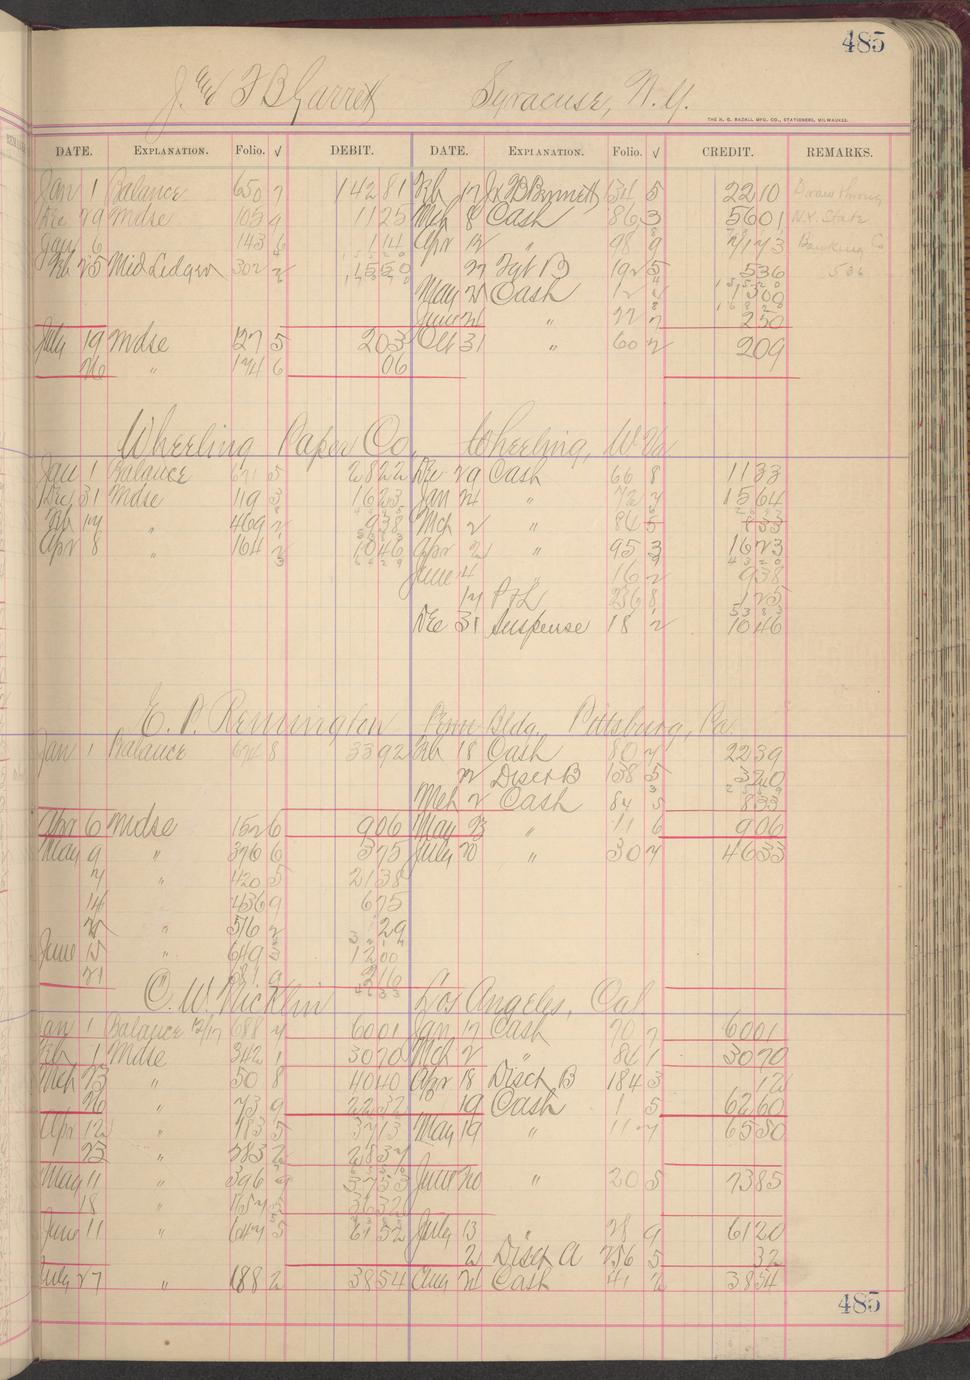 485
J. and F B Garrett Syracuse, N.Y.
THE H. G. RAZALL MFG. CO., STATIONERS, MILWAUKEE.
DATE. EXPLANATION. Folio. √ DEBIT. DATE. EXPLANATION. Folio. √ CREDIT. REMARKS.
Jan 1 Balance 650 7 142 81 Feb 17 5 22 10 Draw through
Dec 29 Mdse 105 9 11 25 Mch 8 Cash 86 3 56 01 N.Y. State
Jan 6 143 6 1 14 Apr 12 " 98 9 71 73 Banking Co
Feb 25 Mid Ledger 302 2 27 Fgt B 192 5 5 36 536
May 21 Cash 15 00
June 21 " 22 7 2 50
July 19 Mdse 127 5 2 03 Oct 31 " 60 2 2 09
26 " 174 6 06
Wheeling Paper Co. Wheeling, W Va
Jan 1 Balance 671 5 28 22 Dec 29 Cash 66 8 11 33
Dec 31 Mdse 119 3 16 23 Jan 24 " 72 7 15 64
Feb 17 " 469 2 9 38 Mch 2 " 84 5 8 33
Apr 8 " 164 2 10 46 Apr 2 " 95 3 16 23
June 4 " 16 2 9 38
17 P & L 236 8 1 25
Dec 31 Suspense 18 2 10 46
E. P. Remington Penn Bldg, Pittsburg, Pa.
Jan 1 Balance 674 8 33 92 Feb 18 Cash 80 7 22 39
22 Disct B 138 5 3 20
Mch 2 Cash 84 5 8 33
Apr 6 Mdse 152 6 9 06 May 23 " 11 6 9 06
May 9 " 376 6 5 75 July 20 " 30 7 46 33
7 " 420 5 21 38
14 436 9 6 75
25 " 516 2 29
June 15 " 649 3 12 00
21 681 9 2 16
C. W. Nicklin Los Angeles, Cal
Jan 1 Balance 12/17 688 7 60 01 Jan 17 Cash 70 7 60 01
Feb 1 Mdse 342 1 30 70 Mch 2 " 84 1 30 70
Mch 23 " 50 8 40 40 Apr 18 Disct B 184 3 12
26 " 73 9 22 32 19 Cash 1 5 62 60
Apr 12 " 183 5 37 13 May 19 " 11 7 65 50
23 " 283 2 28 37
May 11 " 396 9 37 53 June 20 " 20 5 73 85
18 " 36 32
June 11 " 647 5 61 52 July 13 " 28 9 61 20
2 Disct A 256 5 32
July 27 " 188 2 38 54 Aug 24 Cash 41 2 38 54
485